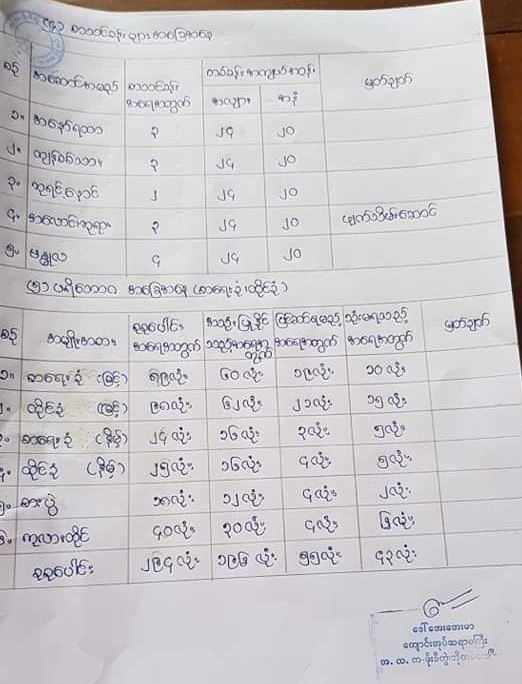 (၄) စာသင်ခန်းများအခြေအနေ
စဉ် အဆောင်အမည် စာသင်ခန်း အရေအတွက် တစ်ခန်းအကျယ်အဝန်း မှတ်ချက်
အလျား အနံ
၁။ အနော်ရထာ ၃ ၂၄ ၂၀
၂။ ကျန်စစ်သား ၃ ၂၄ ၂၀
၃။ ဘုရင့်နောင် ၂ ၂၄ ၂၀
၄။ အလောင်းဘုရား ၃ ၂၄ ၂၀ ဖျက်သိမ်းဆောင်
၅။ ဗန္ဓုလ ၄ ၂၄ ၂၀
(၅) ပရိဘောဂ အခြေအနေ (စာရေးခုံ၊ထိုင်ခုံ)
စဉ် အမျိုးအစား စုစုပေါင်း အရေအတွက် အသုံးပြုနိုင်သည့်အရေအတွက် ပြင်ဆင်ရမည့် အရေအတွက် သုံးမရသည့် အရေအတွက် မှတ်ချက်
၁။ စာရေးခုံ (မြင့်) ၈၉လုံး ၆၀လုံး ၁၉လုံး ၁၀လုံး
၂။ ထိုင်ခုံ (မြင့်) ၉၈လုံး ၆၂လုံး ၂၁လုံး ၁၅လုံး
၃။ စာရေးခုံ (နိမ့်) ၂၄လုံး ၁၆လုံး ၃လုံး ၅လုံး
၄။ ထိုင်ခုံ (နိမ့်) ၂၅လုံး ၁၆လုံး ၄လုံး ၅လုံး
၅။ စားပွဲ ၁၈လုံး ၁၂လုံး ၄လုံး ၂လုံး
၆။ ကုလားထိုင် ၄၀လုံး ၃၀လုံး ၄လုံး ၆လုံး
စုစုပေါင်း ၂၉၄လုံး ၁၉၆လုံး ၅၅လုံး ၄၃လုံး
ဒေါ်အေးအေးမာ
ကျောင်းအုပ်ဆရာမကြီး
အ.ထ.က